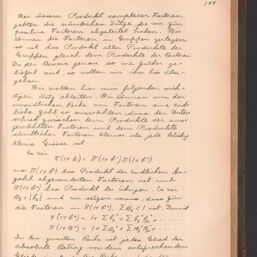 109
Bei diesem Produkt complexer Factoren
gelten die nämlichen Sätze, die wir für
positive Factoren abgeleitet haben. Wir
können die Factoren in Gruppen zerlegen
so ist das Produkt aller Produkte der
Gruppen gleich dem Produkte der Factoren
Da der Beweis genau so wie früher ge-
liefert wird, so wollen wir ihn hier über-
gehen.
Wir wollen hier nur folgenden wich-
tigen Satz ableiten. Wir können aus der
unendlichen Reihe von Factoren eine end-
liche Zahl so auswählen, dass der Unter-
schied zwischen dem Produkte der aus-
gewählten Factoren und dem Produkte
sämtlicher Factoren kleiner als jede beliebig
kleine Grösse ist.
Es sei
Π(1+b) = Π(1+b') Π(1+b'')
wo Π(1+b') das Produkt der endlichen An-
zahl abgesonderter Factoren ist und
Π(1+b'') das Produkt der übrigen. Es sei
und wir setzen voraus, dass für
die Factoren in
In der zweiten Reihe ist jedes Glied der
absolute Betrag von dem entsprechenden